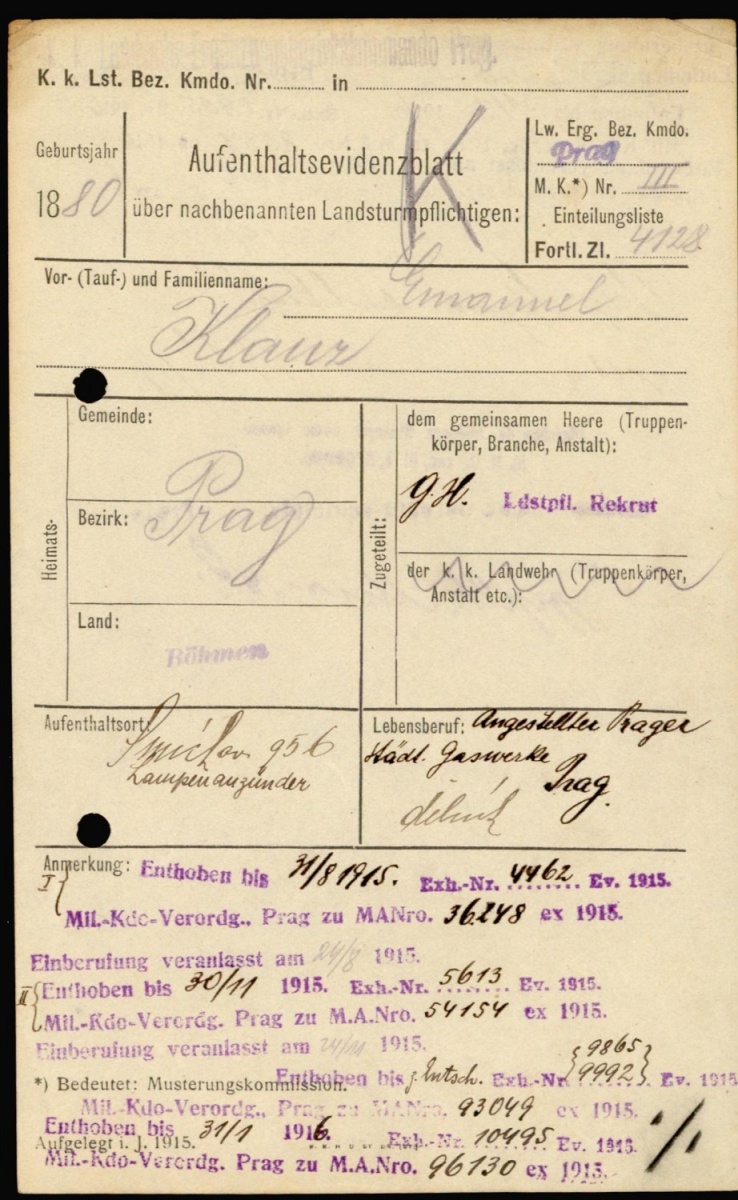 K. k. Lst. Bez. Kmdo. Nr. in
Geburtsjahr
1880
Aufenthaltsevidenzblatt
über nachbenannten Landsturmpflichtigen:
K
Lw. Erg. Bez. Kmdo.
Prag
M. K.*) Nr. III
Einteilungsliste
Fortl. Zl. 4128
Vor- (Tauf-) und Familienname: Emanuel
Klauz
Heimats-
Gemeinde:
Bezirk: Prag
Land:
Böhmen
Zugeteilt:
dem gemeinsamen Heere (Truppen-
körper, Branche, Anstalt):
g.H. Ldstpfl. Rekrut
der k. k. Landwehr (Truppenkörper,
Anstalt etc.):
Aufenthaltsort:
Smíchov 956
Lampenanzünder
Lebensberuf: Angestellter Prager
städt. Gaswerke
Prag.
dělník
Anmerkung: Enthoben bis 31/8 1915. Exh.-Nr. 4462 Ev. 1915.
I
Mil.-Kdo-Verordg., Prag zu MANro. 36248 ex 1915.
Einberufung veranlasst am 24/8 1915.
II Enthoben bis 30/11 1915. Exh.-Nr. 5613 Ev. 1915.
Mil.-Kdo-Verordg. Prag zu M.A.Nro. 54154 ex 1915.
Einberufung veranlasst am 24/11 1915.
9865
*) Bedeutet: Musterungskommission.
Enthoben bis z. Entsch. Exh.-Nr. 9992 Ev. 1915
Mil.-Kdo-Verordg., Prag zu MANro. 93049 ex 1915.
Enthoben bis 31/1 1916. Exh.-Nr. 10495 Ev. 1915.
Aufgelegt i. J. 1915.
Mil.-Kdo-Verordg. Prag zu M.A.Nro. 96130 ex 1915.